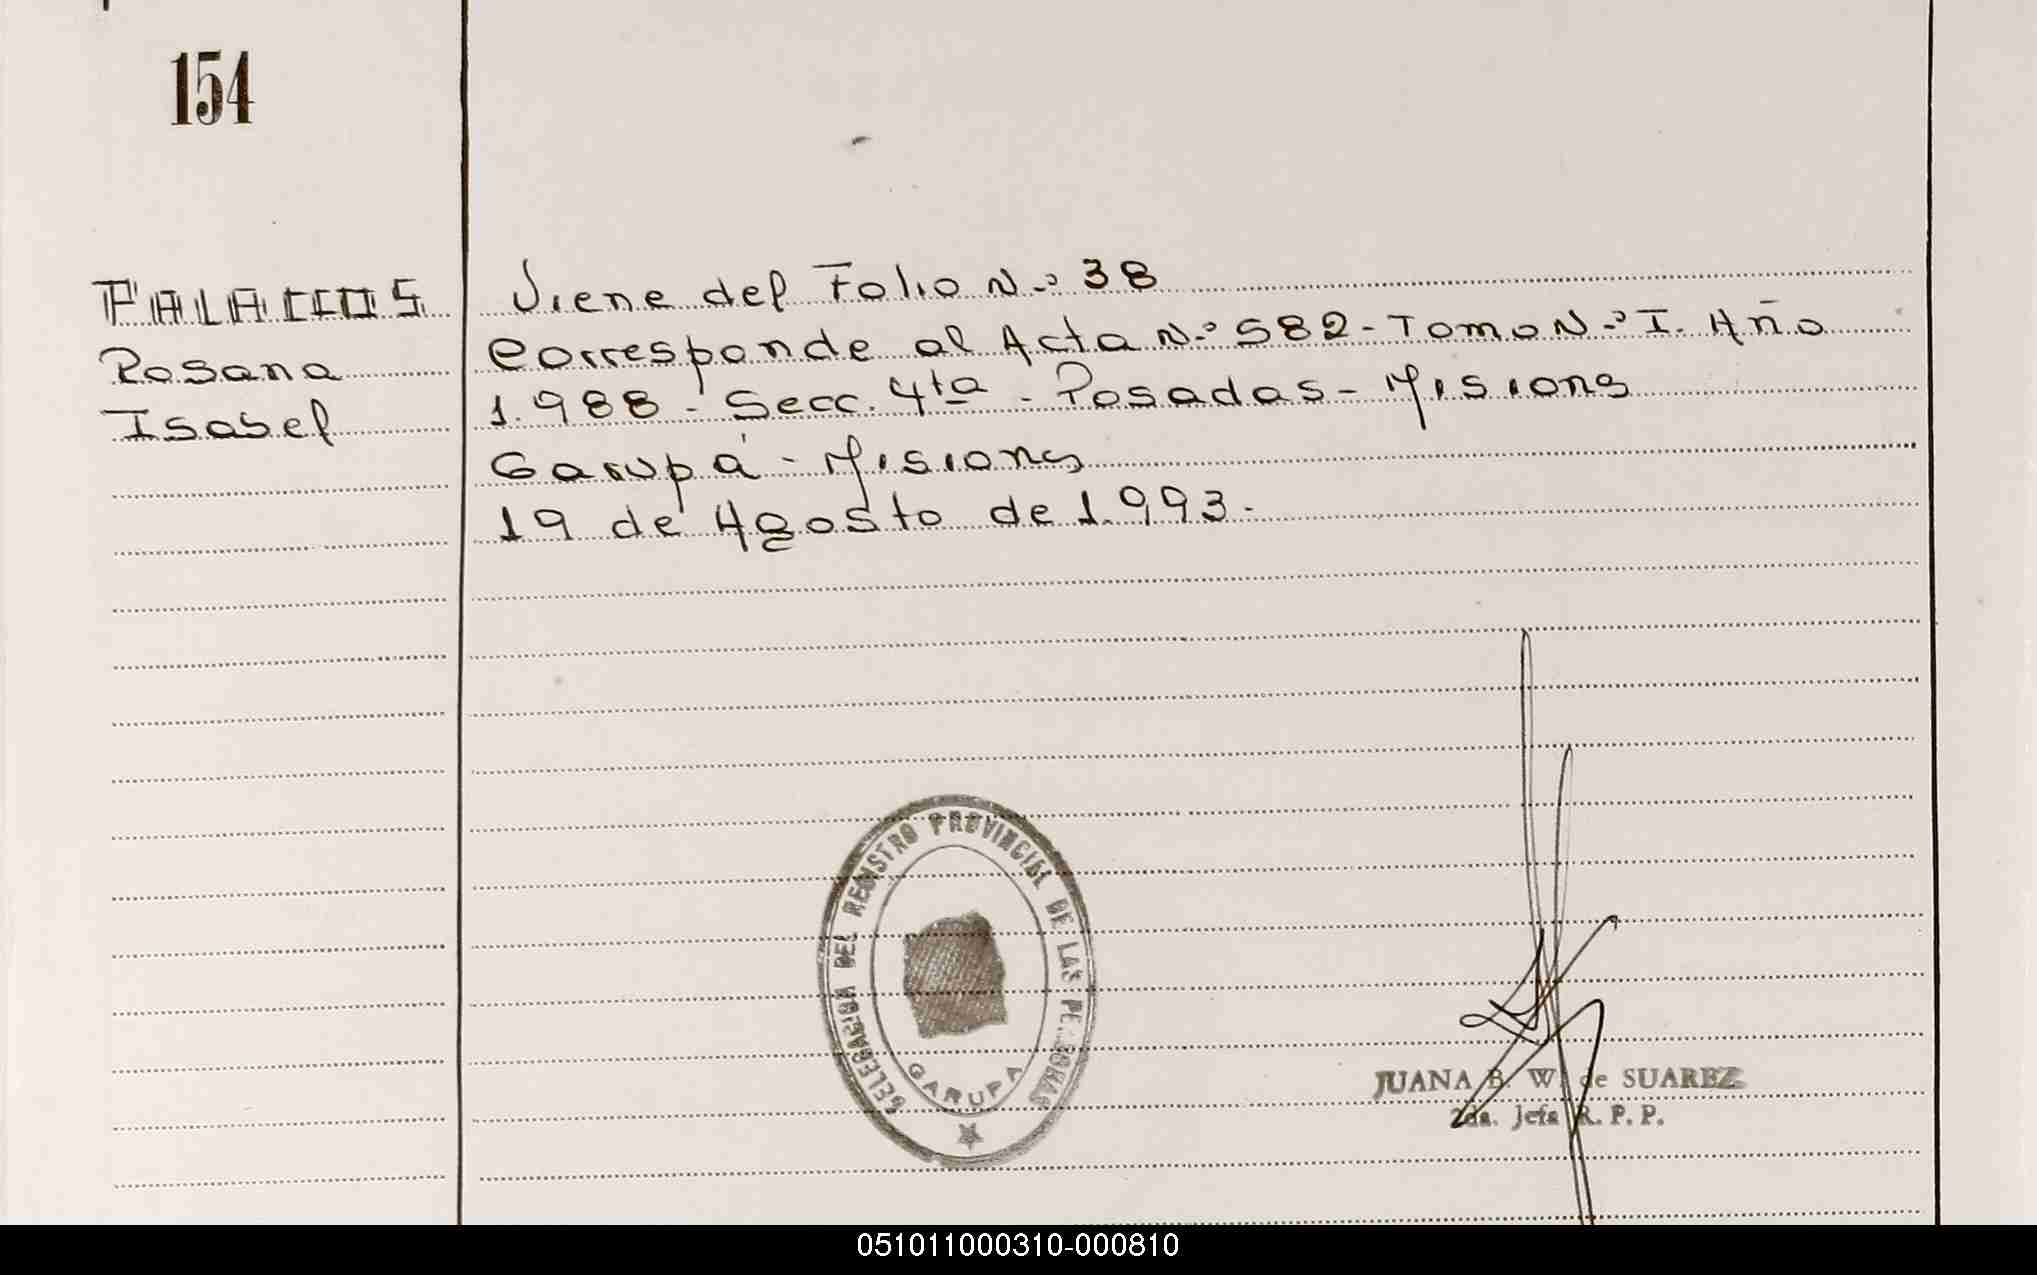 154
PALACIOS
Rosana
Isabel
Viene del Folio N.º 38
Corresponde al Acta N.º 582 - Tomo N.º I. Año
1.988 - Secc. 4ta - Posadas - Misions
Garupá - Misiones
19 de Agosto de 1.993.
DELEGACION DEL REGISTRO PROVINCIAL DE LAS PERSONAS
GARUPA
JUANA B. W. de SUAREZ
2da. Jefa R. P. P.
051011000310-000810